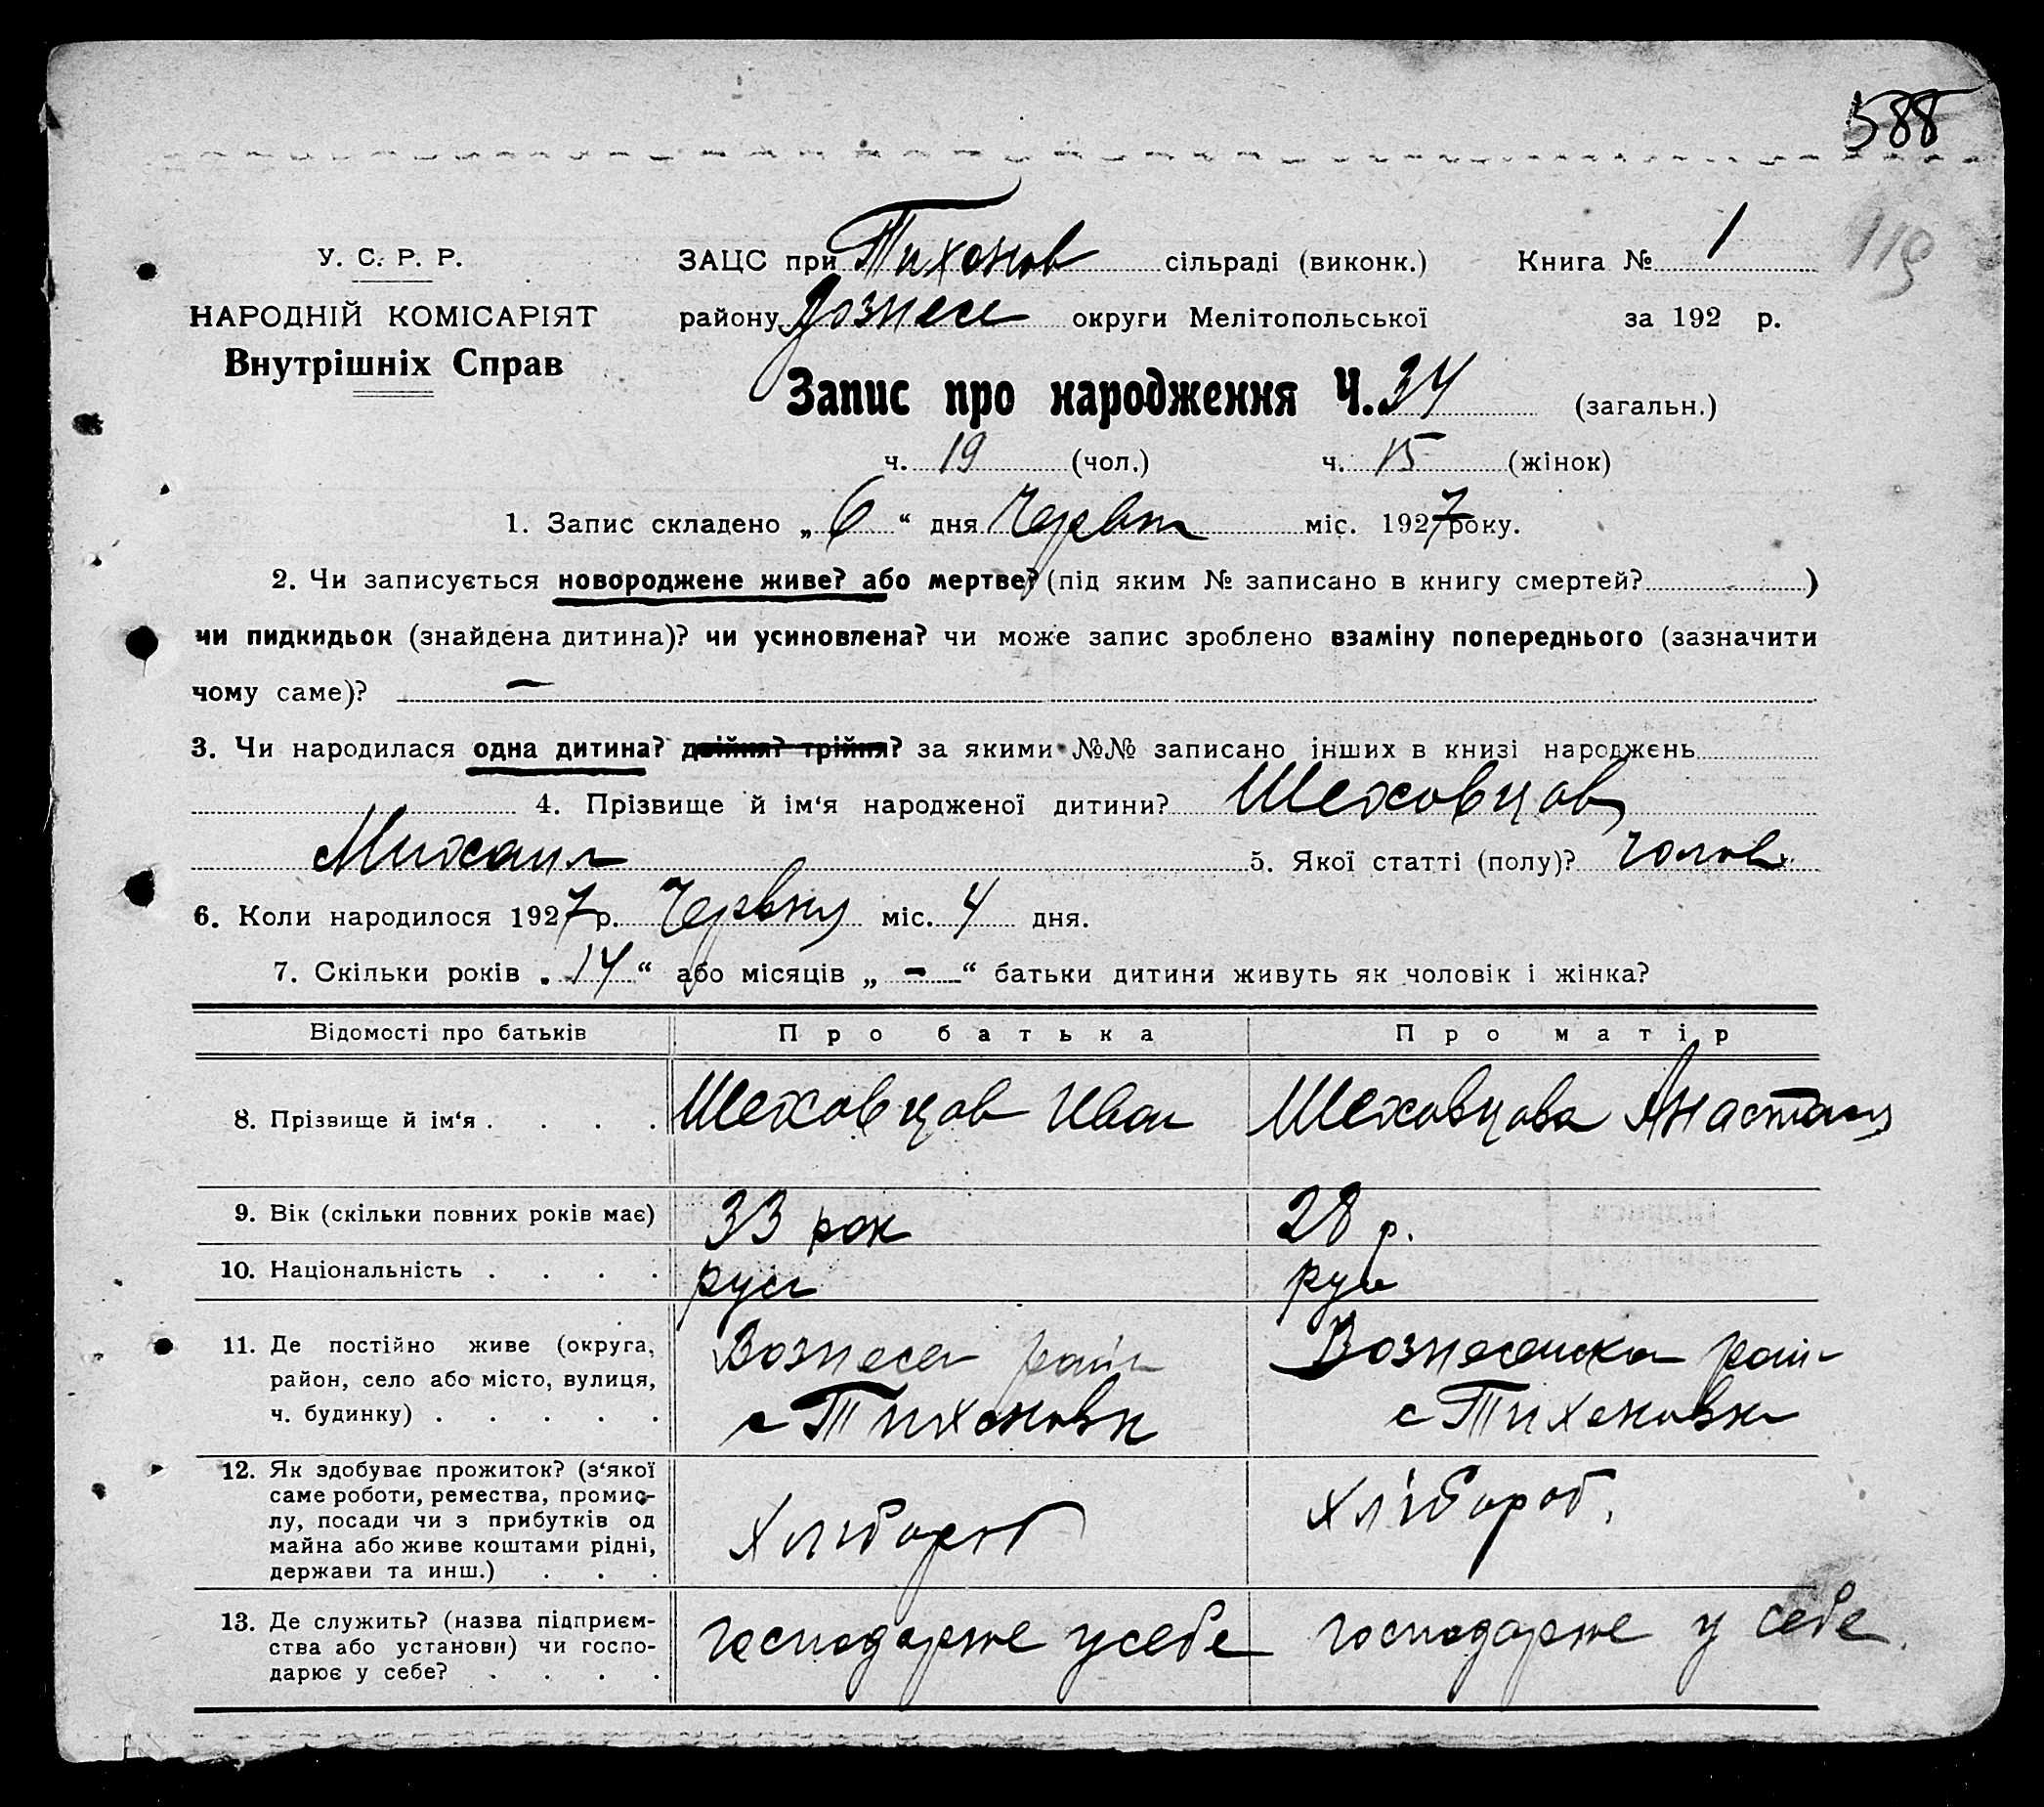 588
119
У. С. Р. Р. ЗАЦС при Тихонов сільраді (виконк.) Книга № 1
НАРОДНІЙ КОМІСАРІЯТ району Вознесе округи Мелітопольської за 192 р.
Внутрішніх Справ
Запис про народження Ч. 34 (загальн.)
ч. 19 (чол.) ч. 15 (жінок)
1. Запис складено „ 6 “ дня Червн міс. 1927 року.
2. Чи записується новороджене живе? або мертве? (під яким № записано в книгу смертей? )
чи пидкидьок (знайдена дитина)? чи усиновлена? чи може запис зроблено взаміну попереднього (зазначити
чому саме)? —
3. Чи народилася одна дитина? двійня? трійня? за якими №№ записано інших в книзі народжень
4. Прізвище й ім‘я народженої дитини? Шеховцов
Михаил 5. Якої статті (полу)? чолов
6. Коли народилося 1927 р. Червня міс. 4 дня.
7. Скільки років „ 14 “ або місяців „ — “ батьки дитини живуть як чоловік і жінка?
Відомості про батьків Про батька Про матір
8. Прізвище й ім‘я . . . . Шеховцов Иван Шеховцова Анастасия
9. Вік (скільки повних років має) 33 рок 28 р.
10. Національність . . . . русс рус
11. Де постійно живе (округа, Вознесен район Вознесенска район
район, село або місто, вулиця,
ч. будинку) . . . . . с Тихоновк с Тихоновка
12. Як здобуває прожиток? (з‘якої
саме роботи, ремества, промис-
лу, посади чи з прибутків од хлібороб хлібороб.
майна або живе коштами рідні,
держави та инш.) . . .
13. Де служить? (назва підприєм-
ства або установи) чи госпо- господарює у себе господарює у себе.
дарює у себе? . . . .